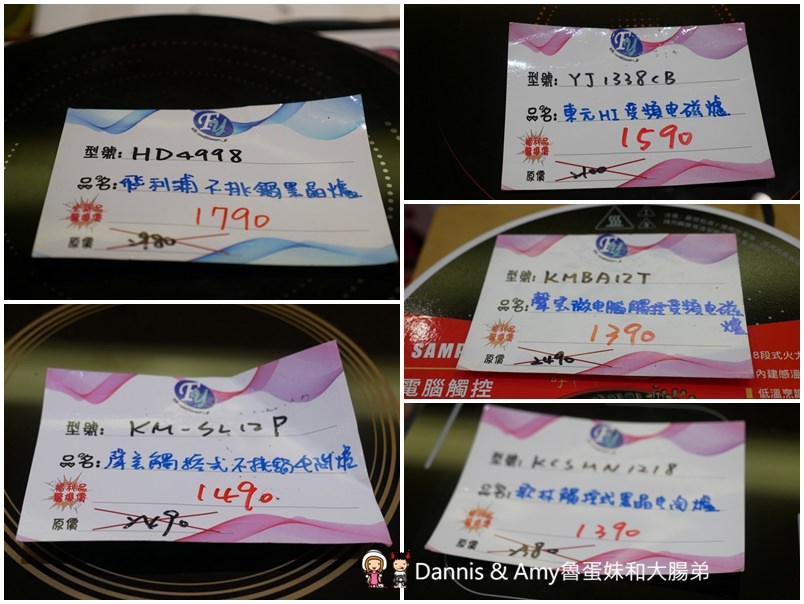 FY
型號: HD4998
品名: 飛利浦不挑鍋黑晶爐
全新品
醫學價
1790
原價 2980
FY
型號: YJ1338CB
品名: 東元HI變頻电磁爐
福利品
1590
原價
FY
型號: KMBA12T
品名: 聲宝微电腦觸控變頻电磁爐
福利品
1390
原價 2490
SAMP
電腦觸控
8段式火力
內建感溫
低溫烹調
FY
型號: KM-SL12P
品名: 聲宝觸控式不挑鍋电陶爐
福利品
1490
原價 2490
FY
型號: KCSMN1218
品名: 歌林觸控式黑晶电陶爐
福利品
1390
原價 2380
Dannis & Amy魯蛋妹和大腸弟